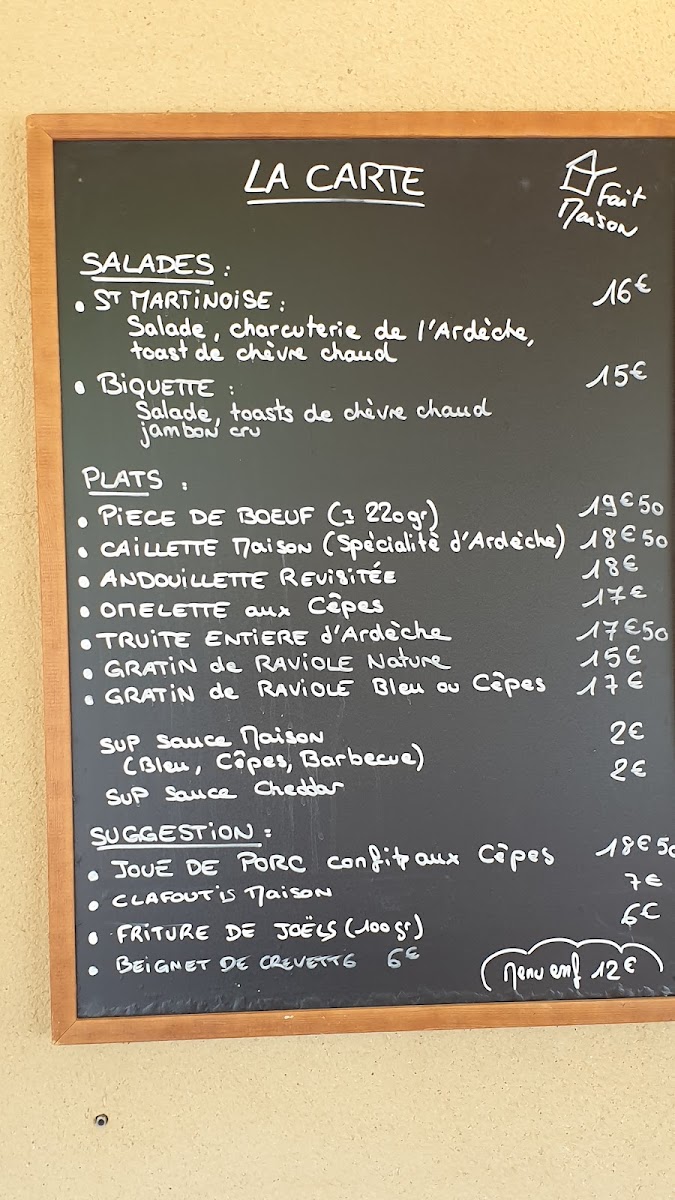 LA CARTE
Fait
Maison
SALADES :
• ST MARTINOISE : 16€
Salade, charcuterie de l'Ardèche,
toast de chèvre chaud
• BIQUETTE : 15€
Salade, toasts de chèvre chaud
jambon cru
PLATS :
• PIECE DE BOEUF (± 220gr) 19€50
• CAILLETTE Maison (Spécialité d'Ardèche) 18€50
• ANDOUILLETTE REVISITÉE 18€
• OMELETTE aux Cêpes 17€
• TRUITE ENTIERE d'Ardèche 17€50
• GRATIN de RAVIOLE Nature 15€
• GRATIN de RAVIOLE Bleu ou Cêpes 17€
SUP Sauce Maison 2€
(Bleu, Cêpes, Barbecue)
SUP Sauce Cheddar 2€
SUGGESTION :
• JOUE DE PORC confit aux Cêpes 18€50
• CLAFOUTIS Maison 7€
• FRITURE DE JOËLS (100gr) 6€
• BEIGNET DE CREVETTE 6€
Menu enf 12€